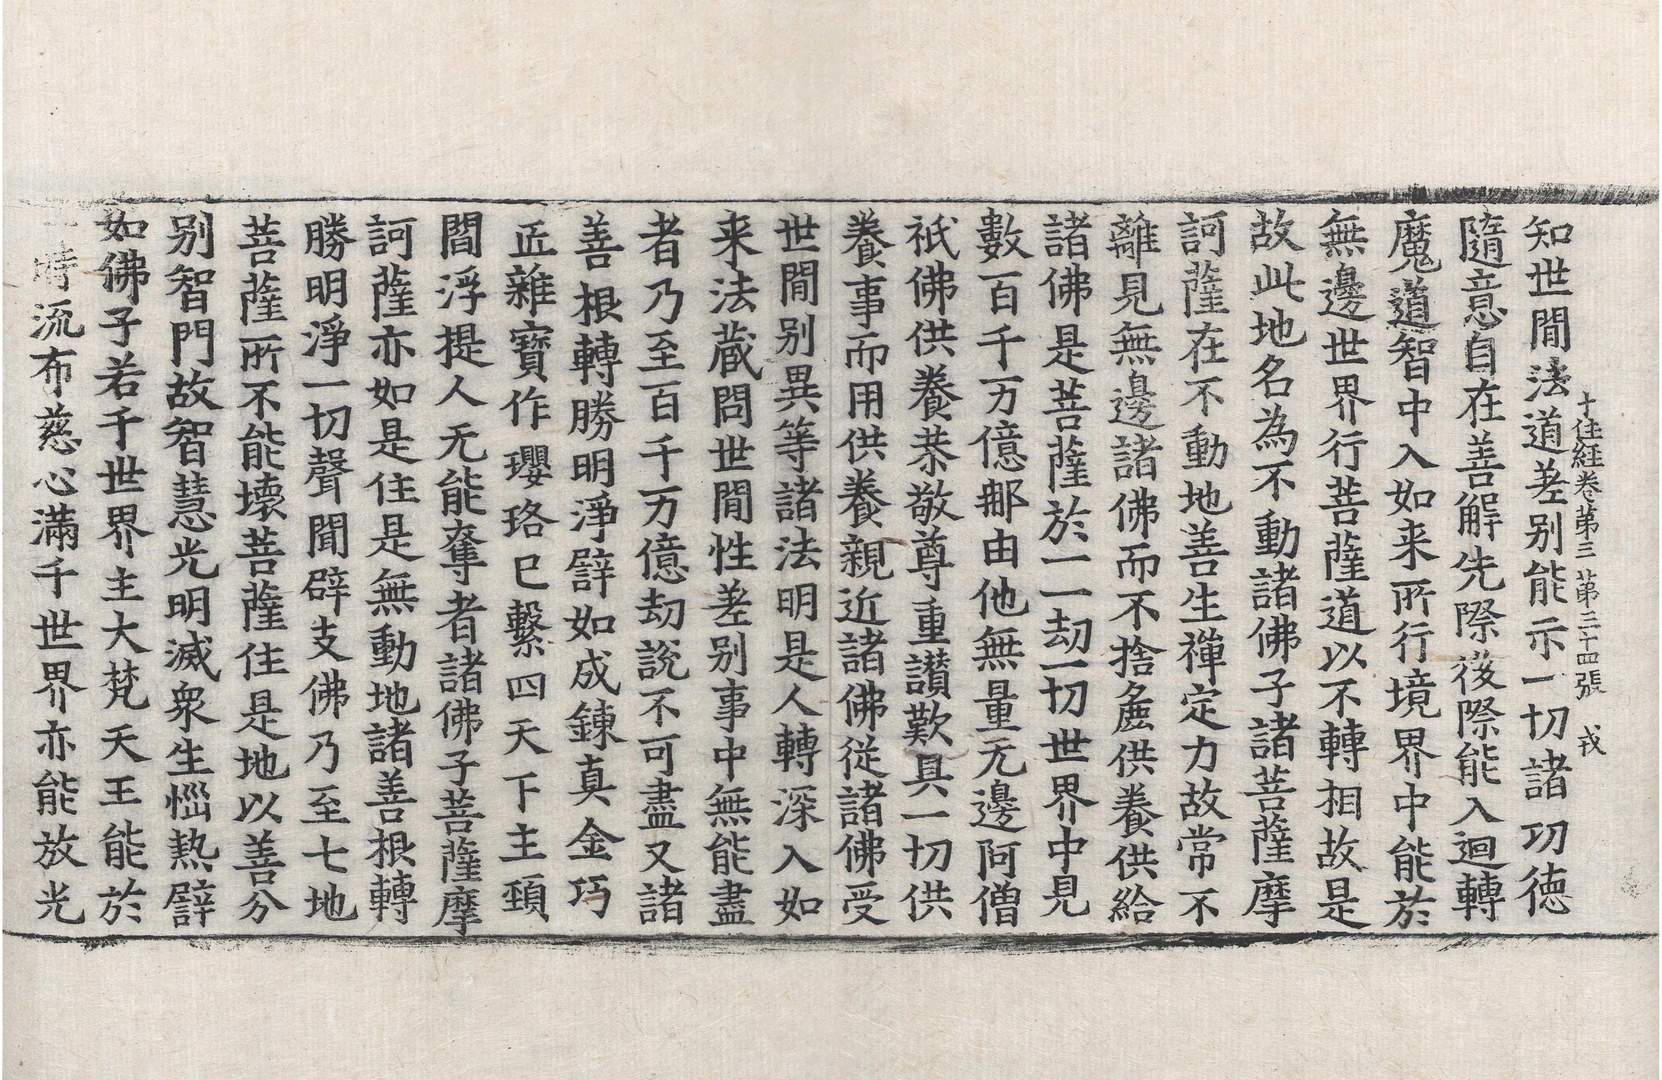 十住経卷第三 第三十四張 戎
知世間法道差別能示一切諸功德
隨意自在善解先際後際能入迴轉
魔道智中入如来所行境界中能於
無邊世界行菩薩道以不轉相故是
故此地名為不動諸佛子諸菩薩摩
訶薩在不動地善生禪定力故常不
離見無邊諸佛而不捨麁供養供給
諸佛是菩薩於一一劫一切世界中見
數百千万億那由他無量无邊阿僧
祇佛供養恭敬尊重讃歎具一切供
養事而用供養親近諸佛従諸佛受
世間別異等諸法明是人轉深入如
来法蔵問世間性差別事中無能盡
者乃至百千万億劫說不可盡又諸
善根轉勝明淨譬如成鍊真金巧
匠雜寶作瓔珞已繫四天下主頚
閻浮提人无能奪者諸佛子菩薩摩
訶薩亦如是住是無動地諸善根轉
勝明淨一切聲聞辟支佛乃至七地
菩薩所不能壞菩薩住是地以善分
別智門故智慧光明滅衆生惱熱譬
如佛子若千世界主大梵天王能於
一時流布慈心滿千世界亦能放光